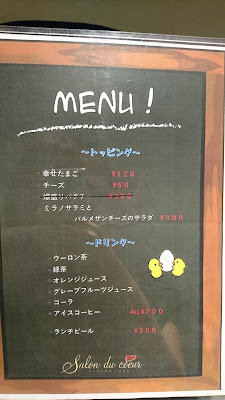 MENU !
～トッピング～
・幸せたまご ¥120
・チーズ ¥50
・塩盛りパクチ ¥300
・ミラノサラミと
パルメザンチーズのサラダ ¥300
～ドリンク～
・ウーロン茶
・緑茶
・オレンジジュース
・グレープフルーツジュース
・コーラ
・アイスコーヒー ALL¥200
・ランチビール ¥300
Salon du cœur